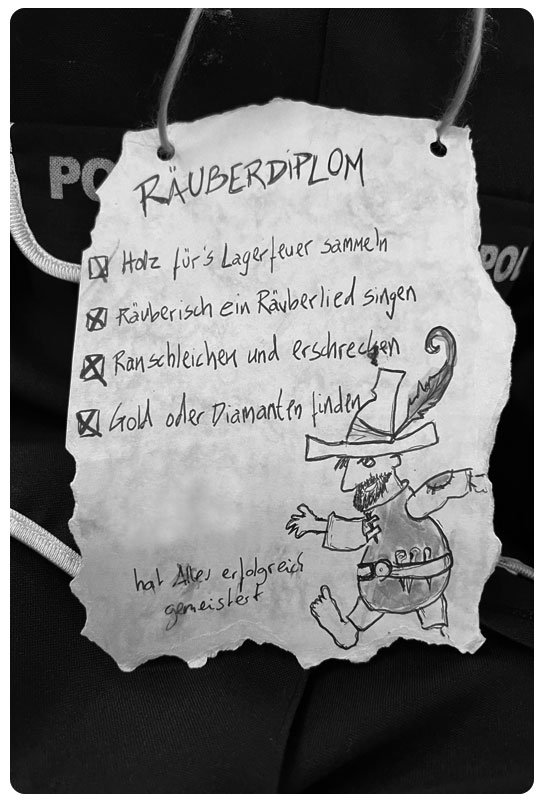 PO
POL
RÄUBERDIPLOM
Holz für's Lagerfeuer sammeln
Räuberisch ein Räuberlied singen
Ranschleichen und erschrecken
Gold oder Diamanten finden
hat Alles erfolgreich
gemeistert